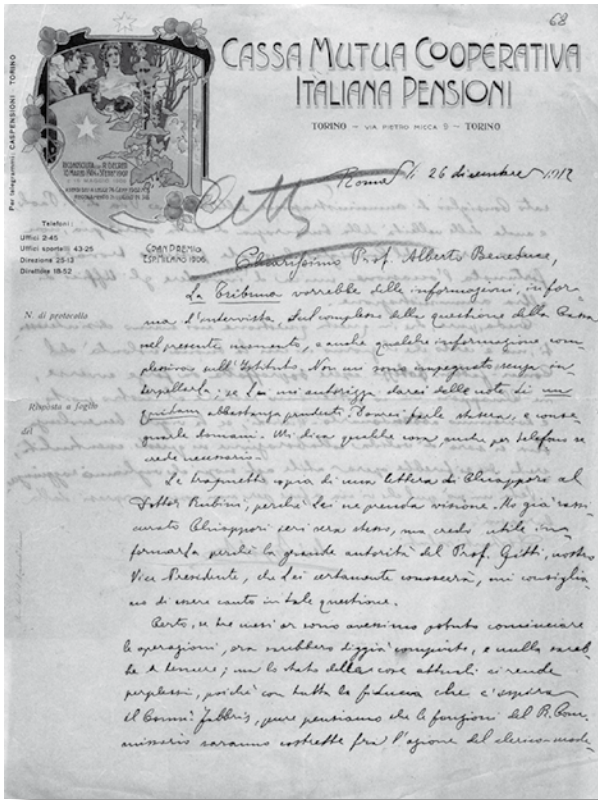 68
CASSA MUTUA COOPERATIVA
ITALIANA PENSIONI
TORINO – VIA PIETRO MICCA 9 – TORINO
Per telegrammi: CASPENSIONI TORINO
Roma li 26 dicembre 1912
Telefoni:
Uffici 2-45
Uffici sportelli 43-25
Direzione 25-13
Direttore 18-52
GRAN PREMIO
ESP. MILANO 1906
Chiarissimo Prof. Alberto Beneduce,
La Tribuna vorrebbe delle informazioni, in for-
ma d'intervista, sul complesso della questione della Cassa
nel presente momento, e anche qualche informazione com-
plessiva sull'Istituto. Non mi sono impegnato senza in-
terpellarLa; se Lei mi autorizza darei delle note di un
quidam abbastanza prudenti. Dovrei farle stasera, e conse-
gnarle domani. Mi dica qualche cosa, anche per telefono se
crede necessario.
N. di protocollo
Risposta a foglio
del
Le trasmetto copia di una lettera di Chiappori al
Dottor Rubini, perchè Lei ne prenda visione. Ho già rassi-
curato Chiappori ieri sera stesso, ma credo utile in-
formarLa perchè la grande autorità del Prof. Gitti, nostro
Vice Presidente, che Lei certamente conoscerà, mi consiglia-
no di essere cauto in tale questione.
Certo, se tre mesi or sono avessimo potuto cominciare
le operazioni, ora sarebbero diggià compiute, e nulla sareb-
be a temere; ma lo stato delle cose attuali ci rende
perplessi, poichè con tutta la fiducia che c'ispira
il Comm. Fabbris, pure pensiamo che le funzioni del R. Com-
missario saranno costrette fra l'azione del clerico-mode-